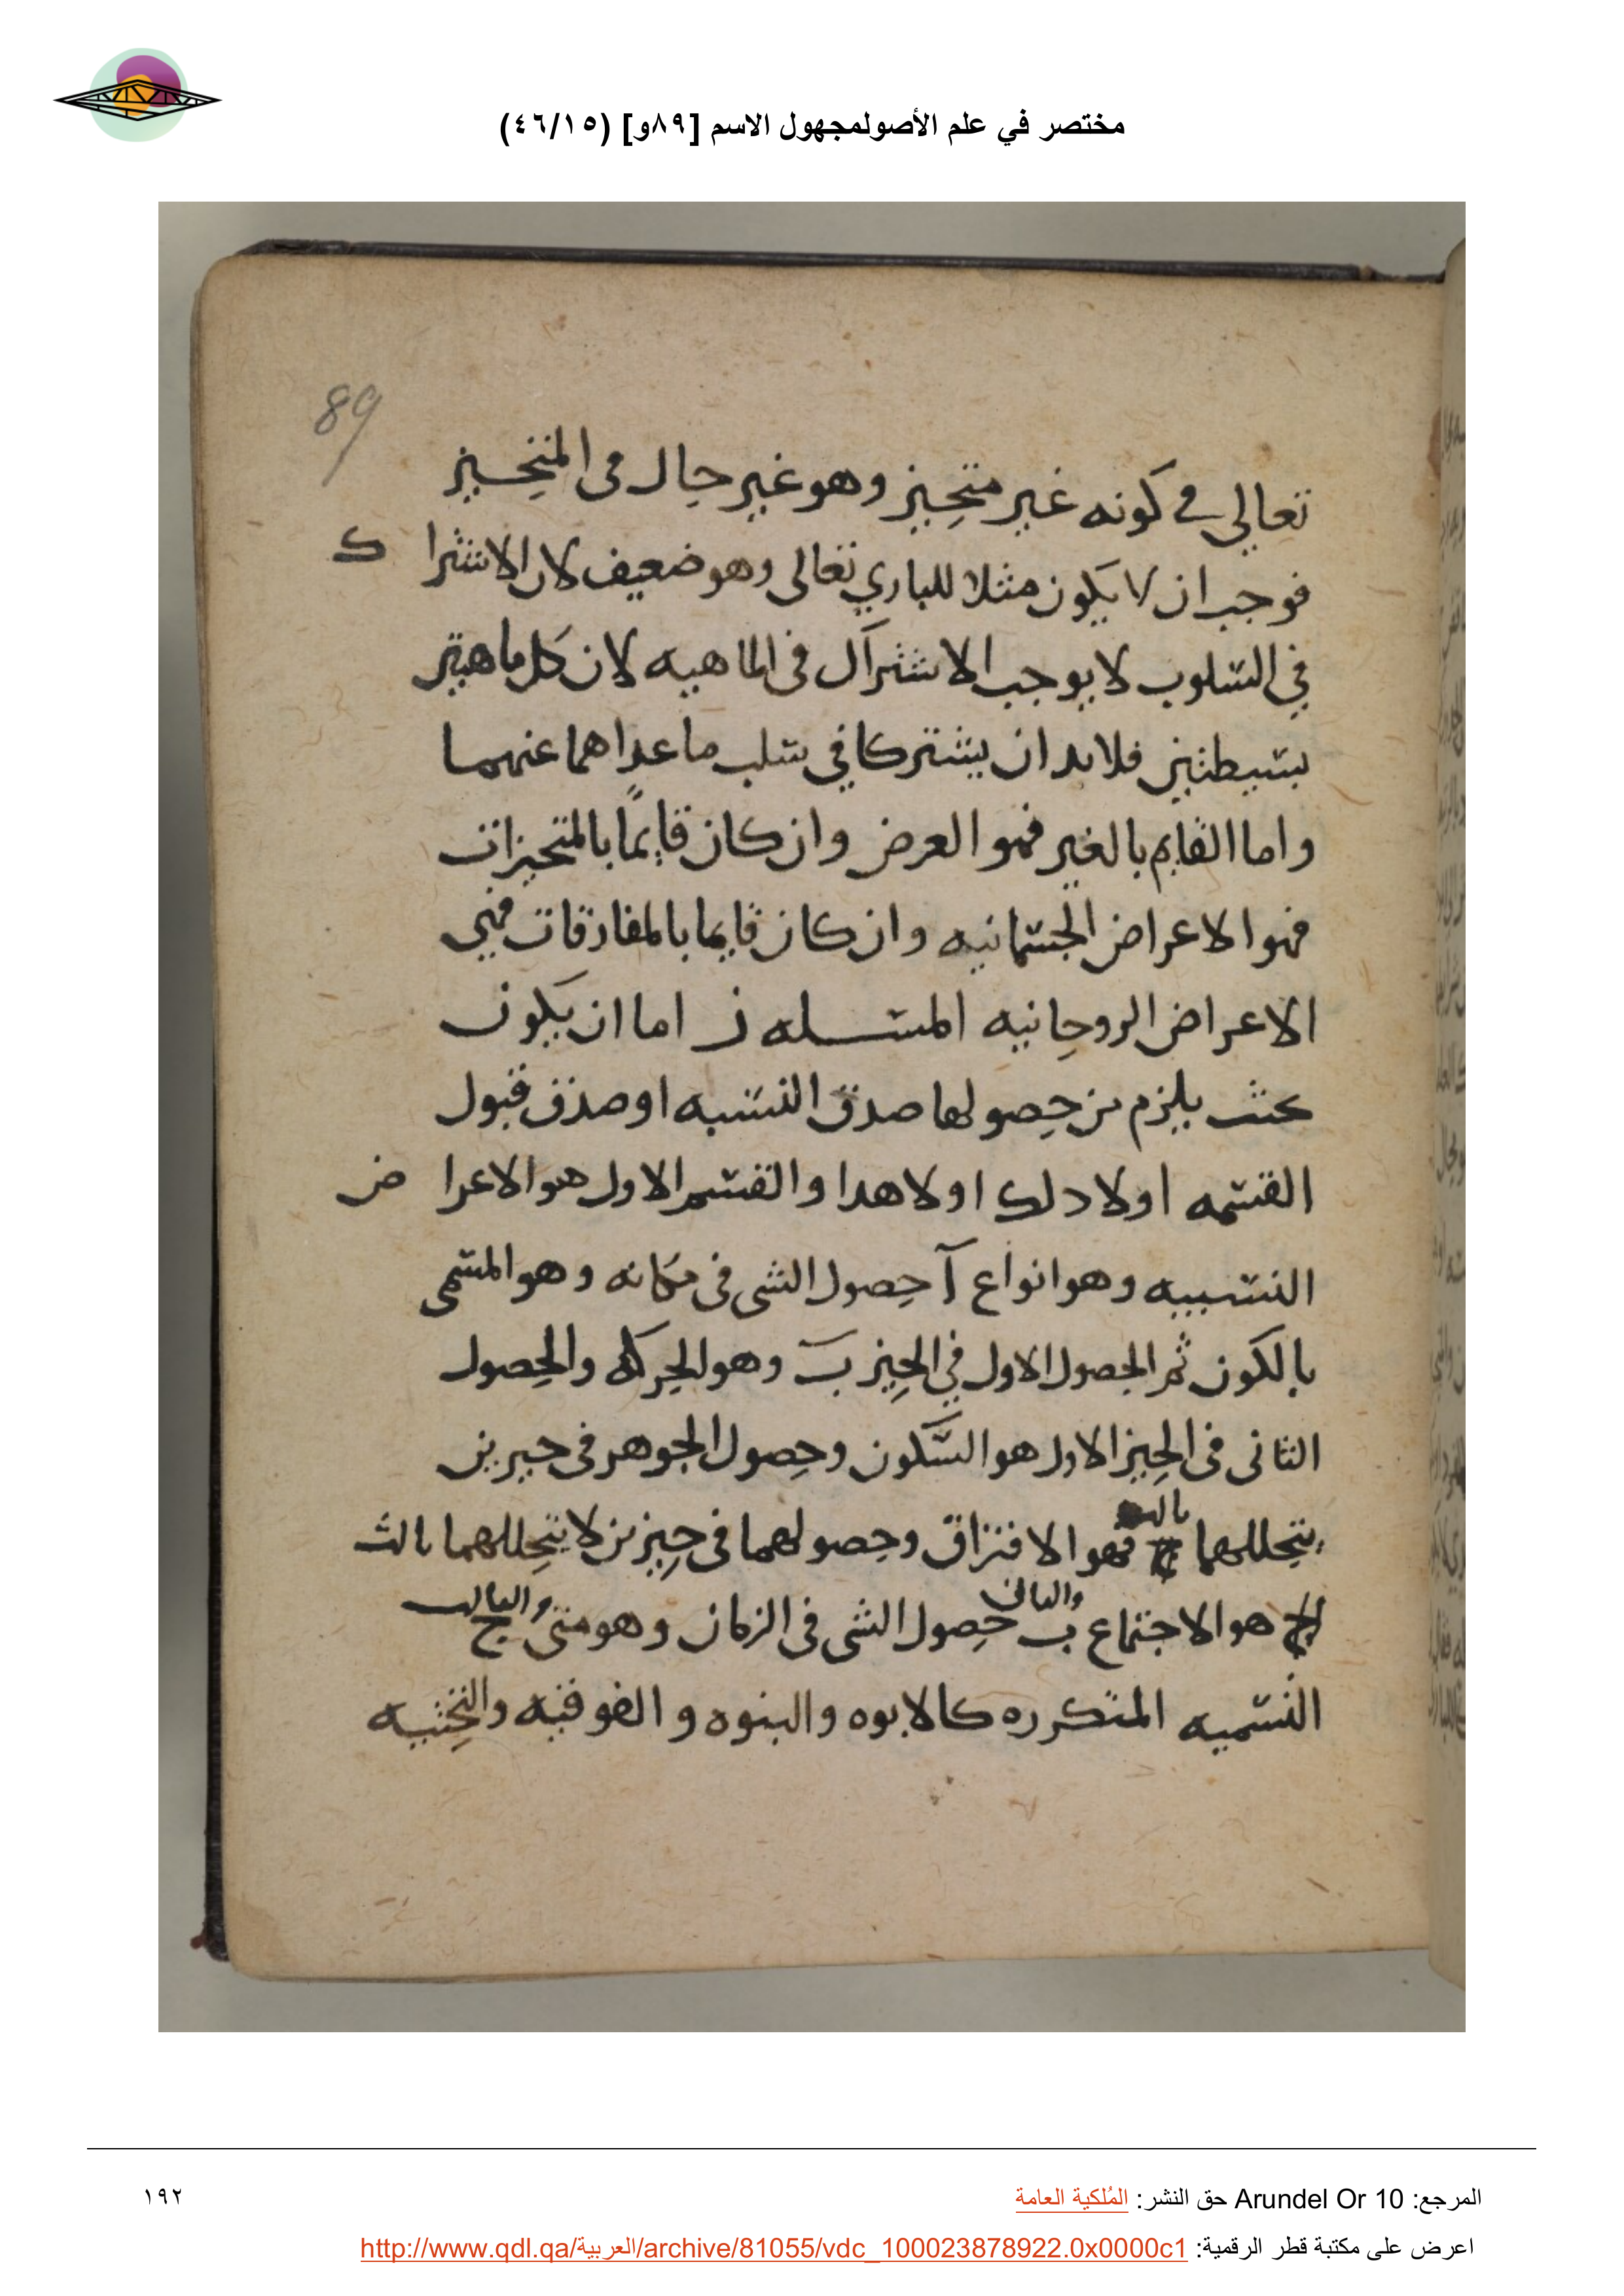 مختصر في علم الأصولمجهول الاسم [٨٩و] (٤٦/١٥)
89
تعالى في كونه غير متحيز وهو غير حال في المتحيز
فوجب ان لا يكون مثلا للباري تعالى وهو ضعيف لان الاشتراك
في السلوب لا يوجب الاشتراك في الماهيه لان كل ماهيتين
بسيطتين فلابد ان يشتركا في سلب ما عداهما عنهما
واما القايم بالغير فهو العرض وان كان قايمًا بالمتحيزات
فهو الاعراض الجسمانيه وان كان قايما بالمفارقات فهي
الاعراض الروحانيه المسـله ز اما ان يكون
بحيث يلزم من حصولها صدق النسبه او صدق قبول
القسمه او لا دلك او لا هدا والقسم الاول هو الاعراض
النسبيه وهو انواع آ حصول الشي في مكانه وهو المسمى
بالكون ثم الحصول الاول في الحيز ب وهو الحركه والحصول
الثاني في الحيز الاول هو السكون وحصول الجوهر في حيزين
يتخللهما فهو الافتراق وحصولهما في حيزين لا يتخللهما ثالث
هو الاجتماع ب والثاني حصول الشي في الزمان وهو متى ج والثالث
النسميه المتكرره كالابوه والبنوه والفوقيه والتحتيه
المرجع: Arundel Or 10 حق النشر: المُلكية العامة
١٩٢
اعرض على مكتبة قطر الرقمية: http://www.qdl.qa/العربية/archive/81055/vdc_100023878922.0x0000c1